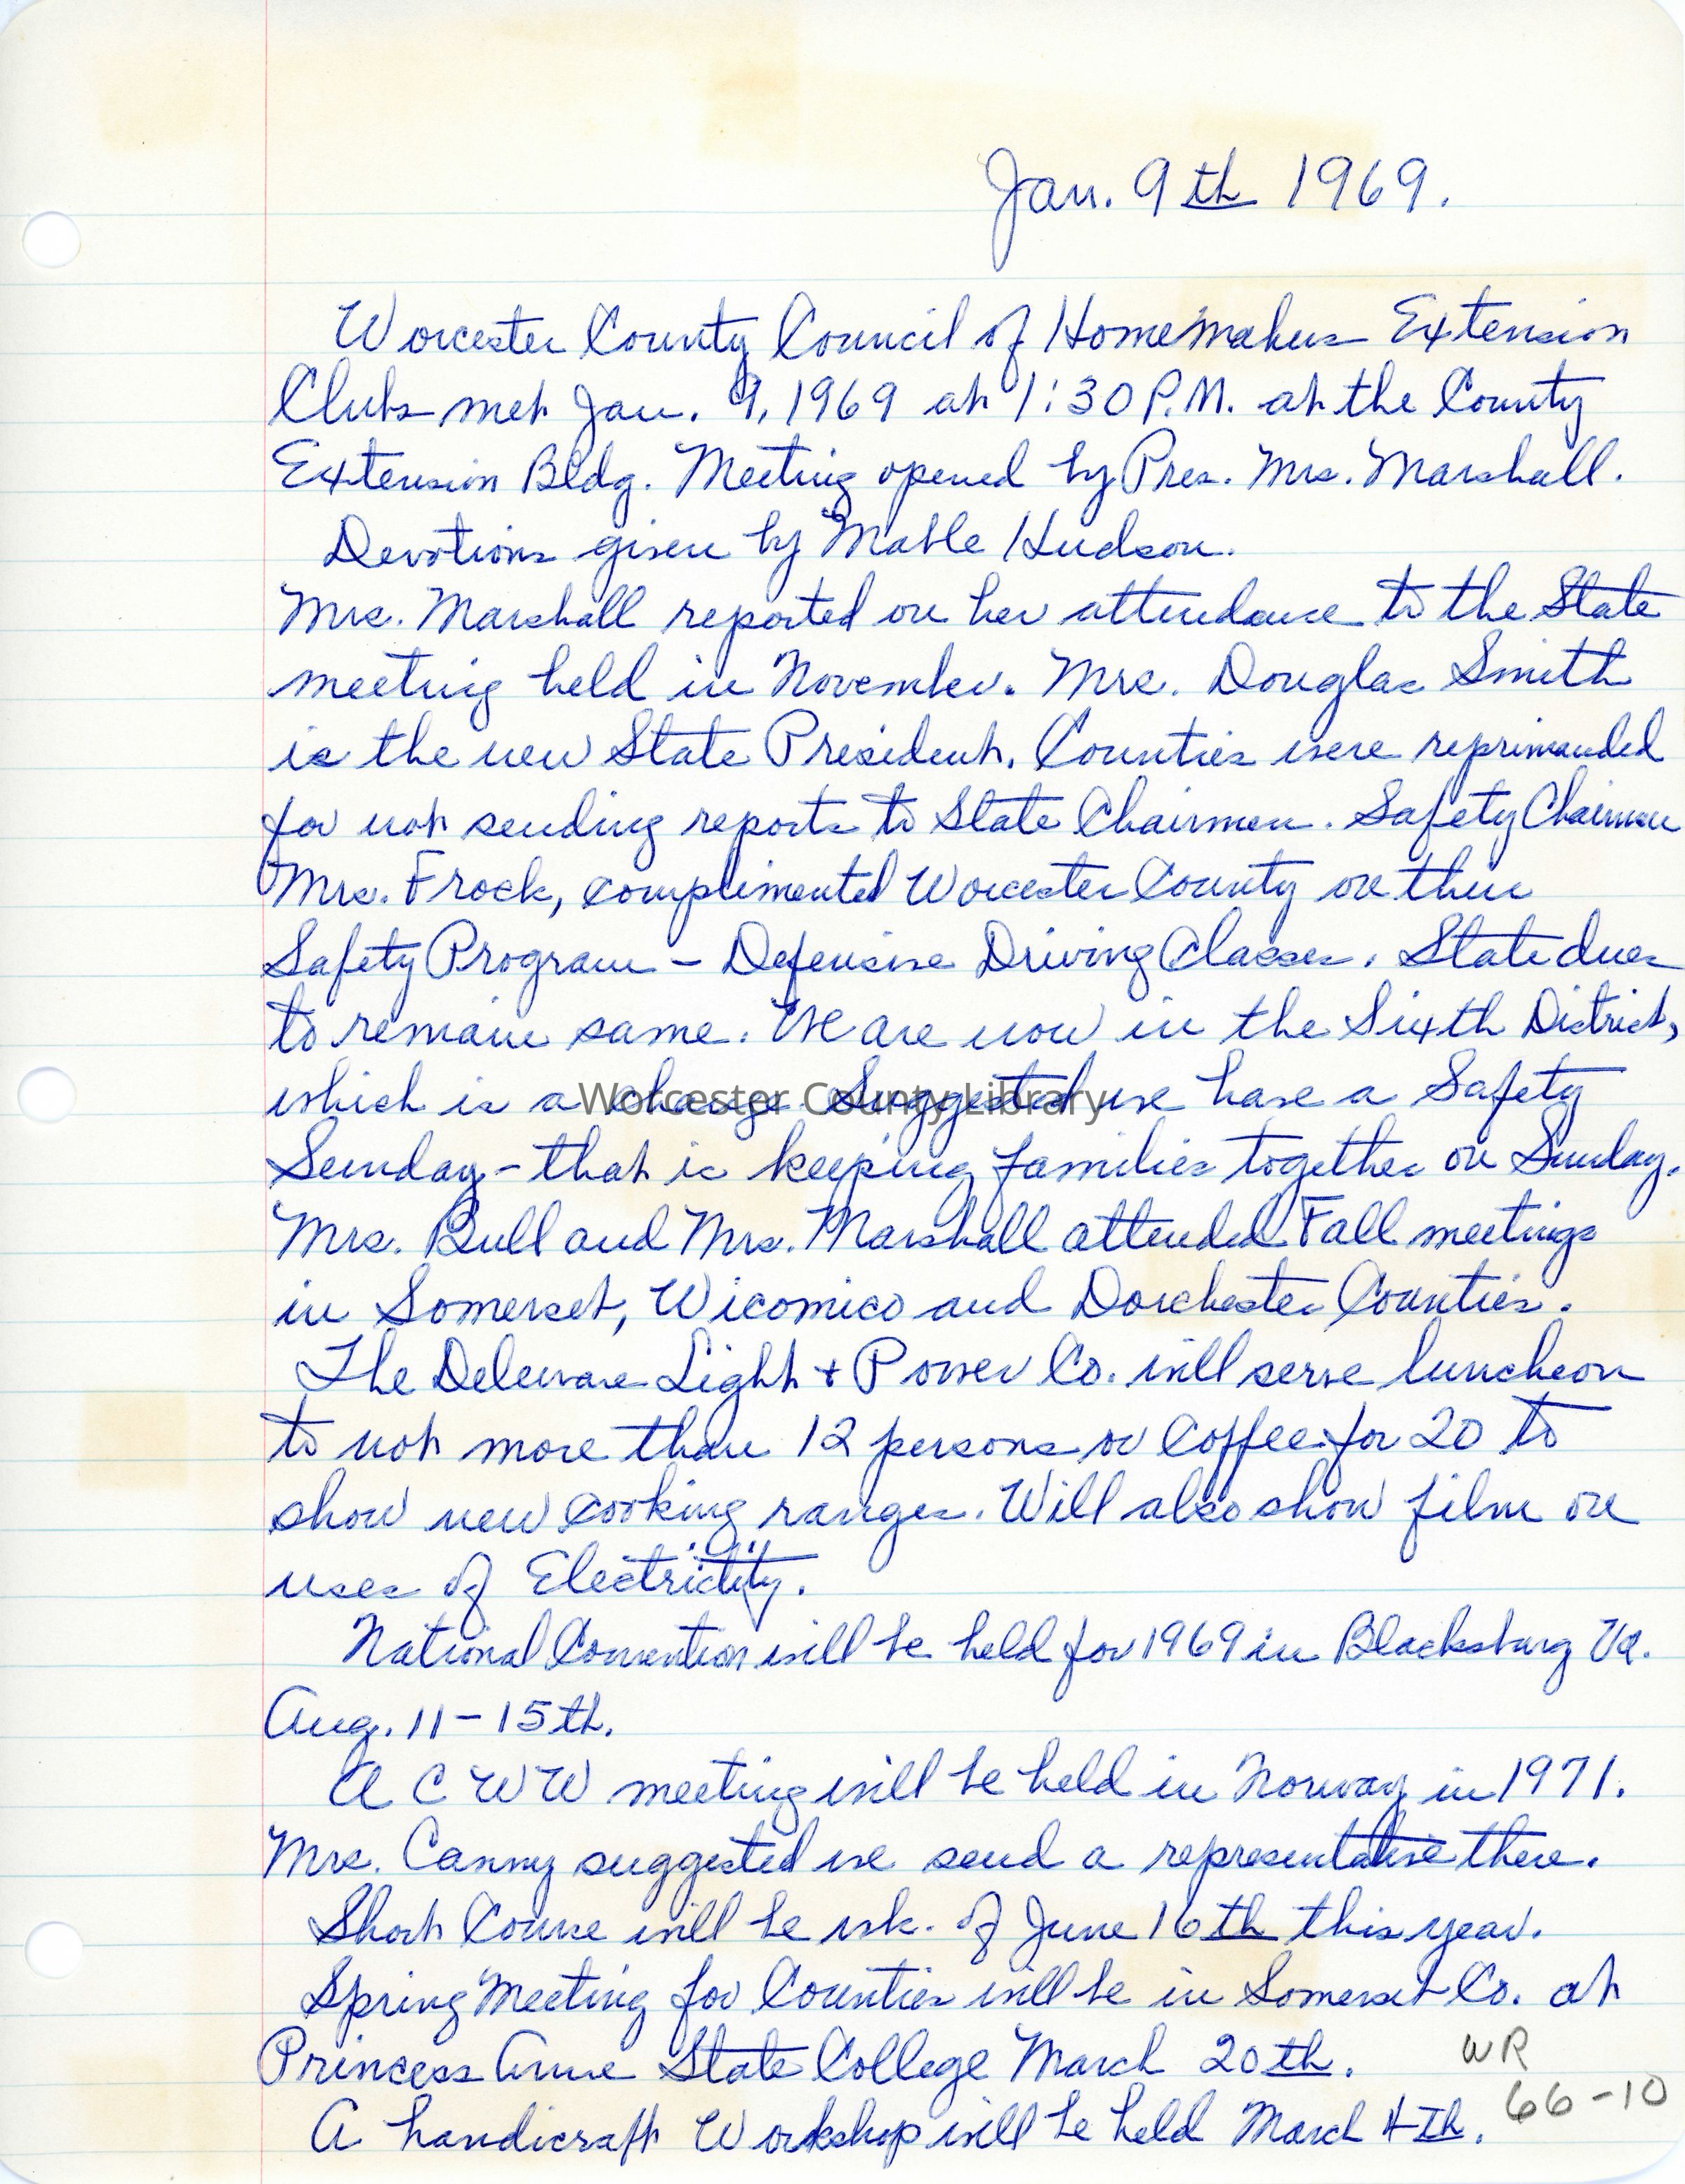 Jan. 9th 1969.
Worcester County Council of Homemakers Extension
Clubs met Jan. 9, 1969 at 1:30 P.M. at the County
Extension Bldg. Meeting opened by Pres. Mrs. Marshall.
Devotions given by Mable Hudson.
Mrs. Marshall reported on her attendance to the State
meeting held in November. Mrs. Douglas Smith
is the new State President. Counties were reprimanded
for not sending reports to State Chairmen. Safety Chairman
Mrs. Frock, complimented Worcester County on their
Safety Program - Defensive Driving Classes. State dues
to remain same. We are now in the Sixth District,
which is a change. Suggested we have a Safety
Worcester County Library
Sunday - that is keeping families together on Sunday.
Mrs. Bull and Mrs. Marshall attended Fall meetings
in Somerset, Wicomico and Dorchester Counties.
The Deleware Light + Power Co. will serve luncheon
to not more than 12 persons or Coffee for 20 to
show new cooking ranges. Will also show film on
uses of Electricity.
National Convention will be held for 1969 in Blacksburg Va.
Aug. 11-15th.
A C W W meeting will be held in Norway in 1971.
Mrs. Canny suggested we send a representative there.
Short Course will be wk. of June 16th this year.
Spring Meeting for Counties will be in Somerset Co. at
Princess Anne State College March 20th.
WR
66-10
A handicraft Workshop will be held March 4th.